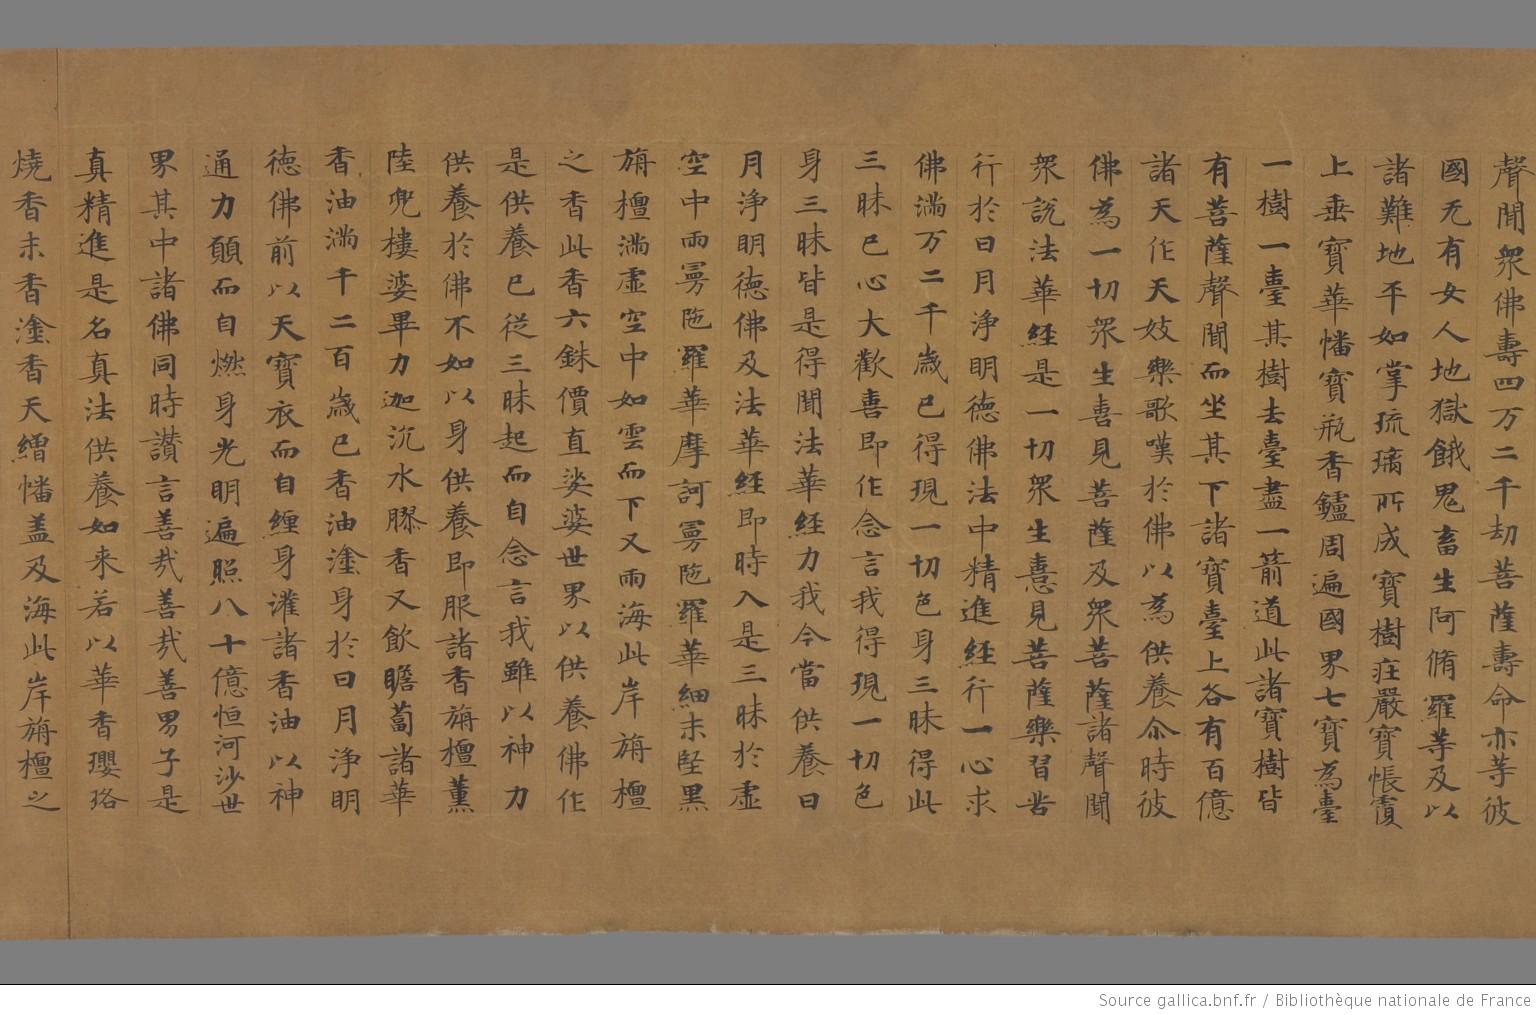 聲聞衆佛壽四万二千劫菩薩壽命亦等彼
國无有女人地獄餓鬼畜生阿脩羅等及以
諸難地平如掌琉璃所成寶樹庄嚴寶帳覆
上垂寶華幡寶瓶香鑪周遍國界七寶為臺
一樹一臺其樹去臺盡一箭道此諸寶樹皆
有菩薩聲聞而坐其下諸寶臺上各有百億
諸天作天妓樂歌嘆於佛以為供養尒時彼
佛為一切衆生喜見菩薩及衆菩薩諸聲聞
衆說法華経是一切衆生憙見菩薩樂習苦
行於日月淨明德佛法中精進経行一心求
佛滿万二千歲已得現一切色身三昧得此
三昧已心大歡喜即作念言我得現一切色
身三昧皆是得聞法華経力我今當供養日
月淨明德佛及法華経即時入是三昧於虛
空中雨曼陁羅華摩訶曼陁羅華細末堅黑
旃檀滿虛空中如雲而下又雨海此岸旃檀
之香此香六銖價直娑婆世界以供養佛作
是供養已從三昧起而自念言我雖以神力
供養於佛不如以身供養即服諸香旃檀薰
陸兜樓婆畢力迦沉水膠香又飲瞻蔔諸華
香油滿千二百歲已香油塗身於日月淨明
德佛前以天寶衣而自纏身灌諸香油以神
通力願而自燃身光明遍照八十億恒河沙世
界其中諸佛同時讃言善哉善哉善男子是
真精進是名真法供養如来若以華香瓔珞
燒香末香塗香天繒幡盖及海此岸旃檀之
Source gallica.bnf.fr / Bibliothèque nationale de France